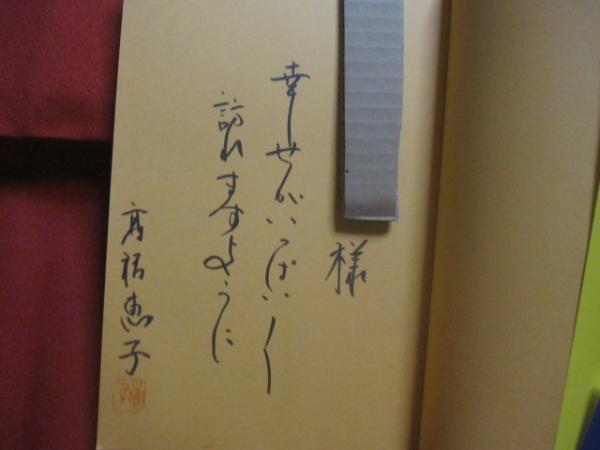 様
幸せがいっぱい〱
訪れますように
高橋恵子